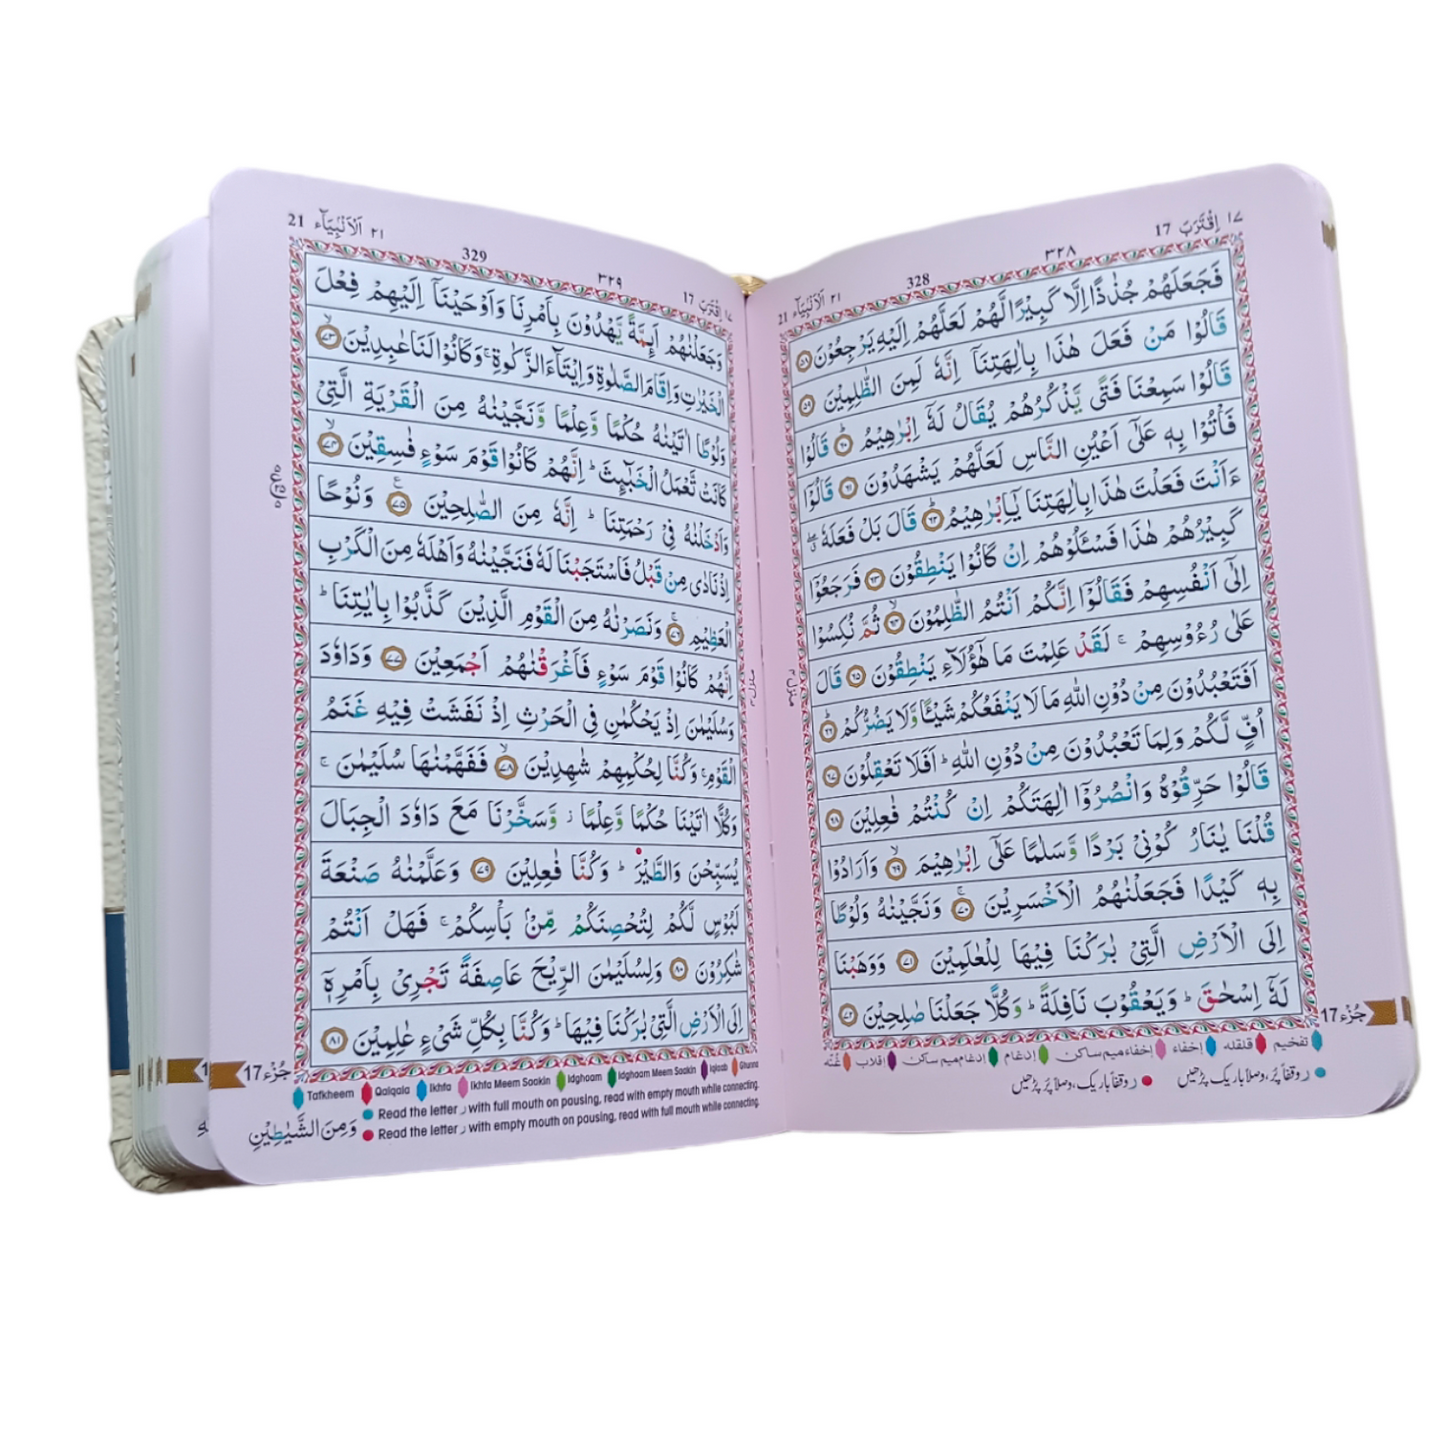 ١٧ اِقْتَرَبَ 17
٣٢٨
328
٢١ اَلْاَنْۢبِيَآء 21
فَجَعَلَهُمْ جُذٰذًا اِلَّا كَبِيْرًا لَّهُمْ لَعَلَّهُمْ اِلَيْهِ يَرْجِعُوْنَ ٥٨
قَالُوْا مَنْ فَعَلَ هٰذَا بِاٰلِهَتِنَاۤ اِنَّهٗ لَمِنَ الظّٰلِمِيْنَ ٥٩
قَالُوْا سَمِعْنَا فَتًى يَّذْكُرُهُمْ يُقَالُ لَهٗۤ اِبْرٰهِيْمُ ؕ ٦٠ قَالُوْا
فَاْتُوْا بِهٖ عَلٰۤى اَعْيُنِ النَّاسِ لَعَلَّهُمْ يَشْهَدُوْنَ ٦١ قَالُوْۤا
ءَاَنْتَ فَعَلْتَ هٰذَا بِاٰلِهَتِنَا يٰۤاِبْرٰهِيْمُ ؕ ٦٢ قَالَ بَلْ فَعَلَهٗ ۖۗ
كَبِيْرُهُمْ هٰذَا فَسْـَٔلُوْهُمْ اِنْ كَانُوْا يَنْطِقُوْنَ ٦٣ فَرَجَعُوْۤا
اِلٰۤى اَنْفُسِهِمْ فَقَالُوْۤا اِنَّكُمْ اَنْتُمُ الظّٰلِمُوْنَ ۙ ٦٤ ثُمَّ نُكِسُوْا
عَلٰى رُءُوْسِهِمْ ۚ لَقَدْ عَلِمْتَ مَا هٰۤؤُلَآءِ يَنْطِقُوْنَ ٦٥ قَالَ
اَفَتَعْبُدُوْنَ مِنْ دُوْنِ اللّٰهِ مَا لَا يَنْفَعُكُمْ شَيْـًٔا وَّلَا يَضُرُّكُمْ ؕ ٦٦
اُفٍّ لَّكُمْ وَلِمَا تَعْبُدُوْنَ مِنْ دُوْنِ اللّٰهِ ؕ اَفَلَا تَعْقِلُوْنَ ٦٧
قَالُوْا حَرِّقُوْهُ وَانْصُرُوْۤا اٰلِهَتَكُمْ اِنْ كُنْتُمْ فٰعِلِيْنَ ٦٨
قُلْنَا يٰنَارُ كُوْنِيْ بَرْدًا وَّسَلٰمًا عَلٰۤى اِبْرٰهِيْمَ ۙ ٦٩ وَاَرَادُوْا
بِهٖ كَيْدًا فَجَعَلْنٰهُمُ الْاَخْسَرِيْنَ ۚ ٧٠ وَنَجَّيْنٰهُ وَلُوْطًا
اِلَى الْاَرْضِ الَّتِيْ بٰرَكْنَا فِيْهَا لِلْعٰلَمِيْنَ ٧١ وَوَهَبْنَا
لَهٗۤ اِسْحٰقَ ؕ وَيَعْقُوْبَ نَافِلَةً ؕ وَكُلًّا جَعَلْنَا صٰلِحِيْنَ ٧٢
جُزْء 17
تفخیم قلقلہ إخفاء إخفاءمیم ساکن إدغام إدغام میم ساکن اقلاب غنّہ
ر وقفاً پُر، وصلاً باریک پڑھیں
ر وقفاً باریک، وصلاً پُر پڑھیں
منزل ٤
١٧ اِقْتَرَبَ 17
٣٢٩
329
٢١ اَلْاَنْۢبِيَآء 21
وَجَعَلْنٰهُمْ اَئِمَّةً يَّهْدُوْنَ بِاَمْرِنَا وَاَوْحَيْنَاۤ اِلَيْهِمْ فِعْلَ
الْخَيْرٰتِ وَاِقَامَ الصَّلٰوةِ وَاِيْتَآءَ الزَّكٰوةِ ۚ وَكَانُوْا لَنَا عٰبِدِيْنَ ۙ ٧٣
وَلُوْطًا اٰتَيْنٰهُ حُكْمًا وَّعِلْمًا وَّنَجَّيْنٰهُ مِنَ الْقَرْيَةِ الَّتِيْ
كَانَتْ تَّعْمَلُ الْخَبٰٓئِثَ ؕ اِنَّهُمْ كَانُوْا قَوْمَ سَوْءٍ فٰسِقِيْنَ ۙ ٧٤
وَاَدْخَلْنٰهُ فِيْ رَحْمَتِنَا ؕ اِنَّهٗ مِنَ الصّٰلِحِيْنَ ع ٧٥ وَنُوْحًا
اِذْ نَادٰى مِنْ قَبْلُ فَاسْتَجَبْنَا لَهٗ فَنَجَّيْنٰهُ وَاَهْلَهٗ مِنَ الْكَرْبِ
الْعَظِيْمِ ۚ ٧٦ وَنَصَرْنٰهُ مِنَ الْقَوْمِ الَّذِيْنَ كَذَّبُوْا بِاٰيٰتِنَا ؕ
اِنَّهُمْ كَانُوْا قَوْمَ سَوْءٍ فَاَغْرَقْنٰهُمْ اَجْمَعِيْنَ ٧٧ وَدَاوٗدَ
وَسُلَيْمٰنَ اِذْ يَحْكُمٰنِ فِي الْحَرْثِ اِذْ نَفَشَتْ فِيْهِ غَنَمُ
الْقَوْمِ ۚ وَكُنَّا لِحُكْمِهِمْ شٰهِدِيْنَ ۙ ٧٨ فَفَهَّمْنٰهَا سُلَيْمٰنَ ۚ
وَكُلًّا اٰتَيْنَا حُكْمًا وَّعِلْمًا ز وَّسَخَّرْنَا مَعَ دَاوٗدَ الْجِبَالَ
يُسَبِّحْنَ وَالطَّيْرَ ؕ وَكُنَّا فٰعِلِيْنَ ٧٩ وَعَلَّمْنٰهُ صَنْعَةَ
لَبُوْسٍ لَّكُمْ لِتُحْصِنَكُمْ مِّنْۢ بَاْسِكُمْ ۚ فَهَلْ اَنْتُمْ
شٰكِرُوْنَ ٨٠ وَلِسُلَيْمٰنَ الرِّيْحَ عَاصِفَةً تَجْرِيْ بِاَمْرِهٖۤ
اِلَى الْاَرْضِ الَّتِيْ بٰرَكْنَا فِيْهَا ؕ وَكُنَّا بِكُلِّ شَيْءٍ عٰلِمِيْنَ ٨١
جُزْء 17
Tafkheem Qalqala Ikhfa Ikhfa Meem Saakin Idghaam Idghaam Meem Saakin Iqlaab Ghunna
Read the letter ر with full mouth on pausing, read with empty mouth while connecting.
Read the letter ر with empty mouth on pausing, read with full mouth while connecting.
وَمِنَ الشَّيٰطِيْنِ
منزل ٤